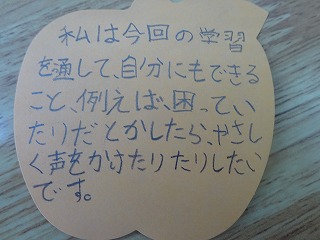 私は今回の学習
を通して、自分にもできる
こと、例えば、困ってい
たりだとかしたら、やさし
く声をかけたりたりしたい
です。